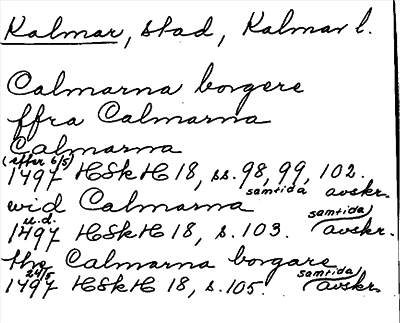 Kalmar, stad, Kalmar l.
Calmarna borgere
ffra Calmarna
Calmarna
(efter 6/5)
1497 HSkH 18, ss. 98, 99, 102.
samtida avskr.
wid Calmarna
u.d. samtida
1497 HSkH 18, s. 103. avskr.
the Calmarna borgare
24/5 samtida
1497 HSkH 18, s. 105. avskr.